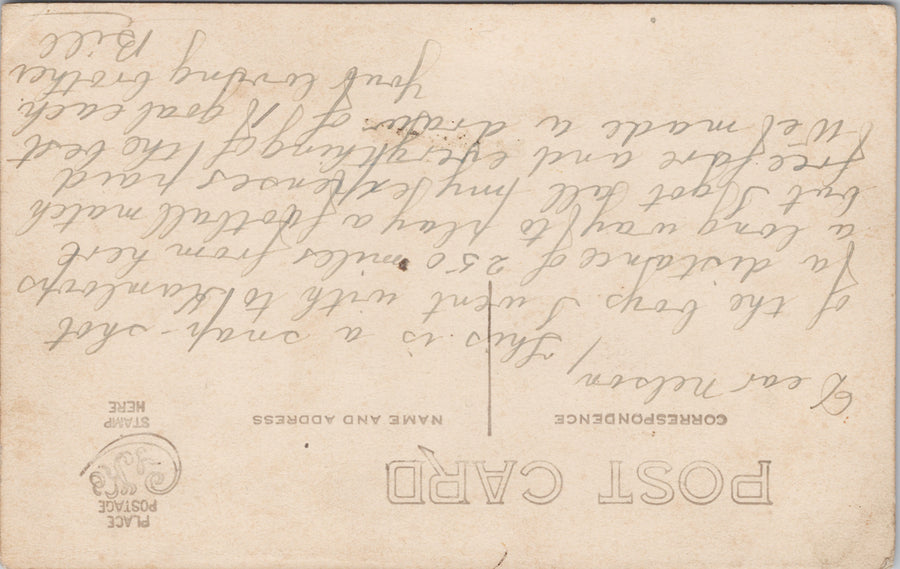 POST CARD
PLACE
POSTAGE
STAMP
HERE
CORRESPONDENCE
NAME AND ADDRESS
Dear Nelson,
This is a snap-shot
of the boys I went with to Kamloops
a distance of 250 miles from here
a long way to play a football match
but I got all my expenses paid
free fare and everything of the best
We made a draw of 1 goal each.
Your loving brother
Bill